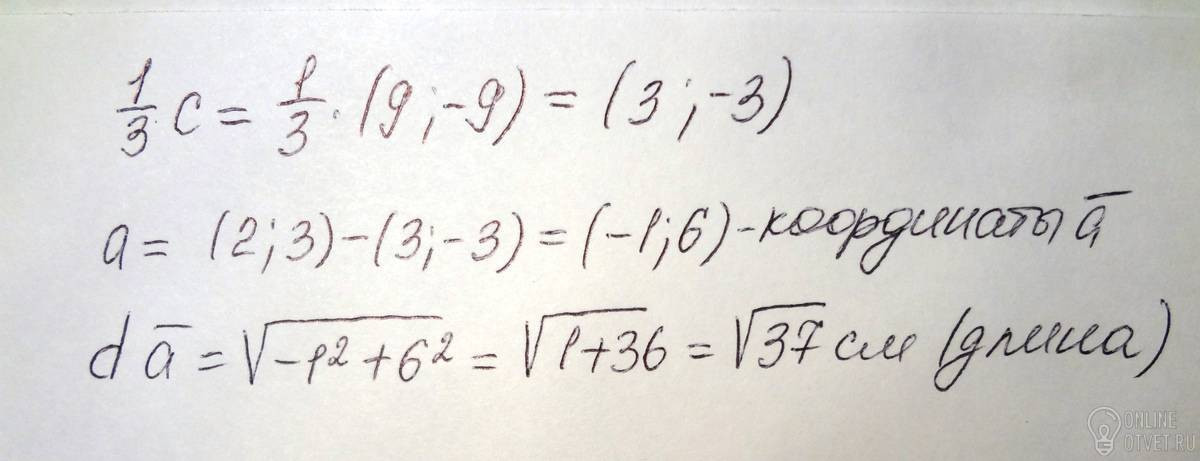 1/3 c = 1/3 · (9 ; -9) = (3 ; -3)
a = (2 ; 3) - (3 ; -3) = (-1 ; 6) - координаты a̅
d a̅ = √(-1² + 6²) = √(1+36) = √37 см (длина)
ONLINE
OTVET.RU